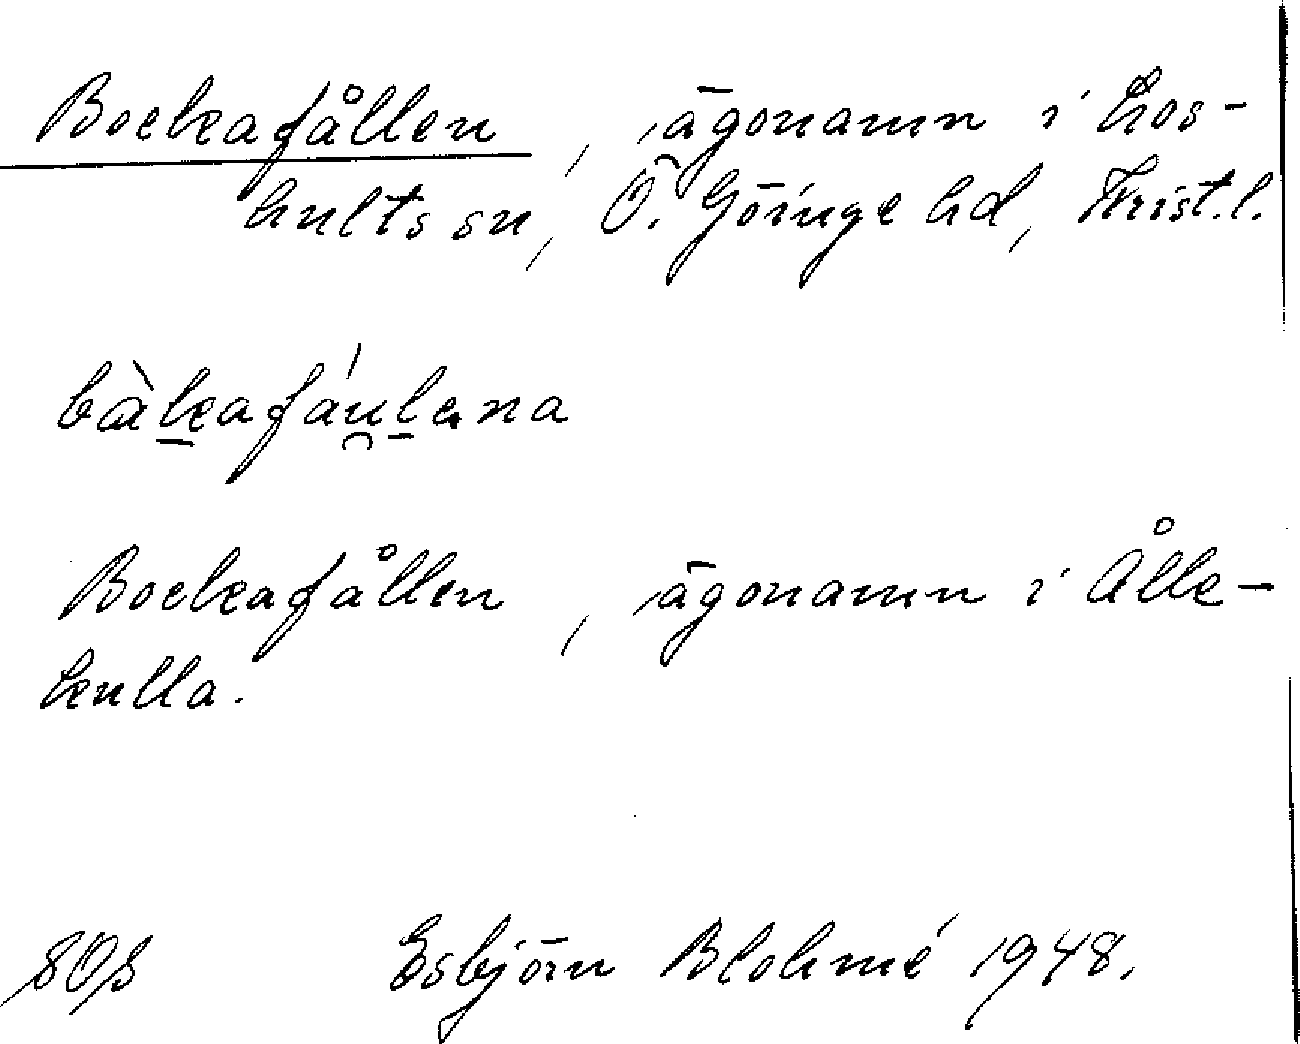 Bockafållen, ägonamn i Los-
hults sn, Ö. Göinge hd, Krist.l.
bàkafáulena
Bockafållen, ägonamn i Ålle-
kulla.
SOS Esbjörn Blohmé 1948.